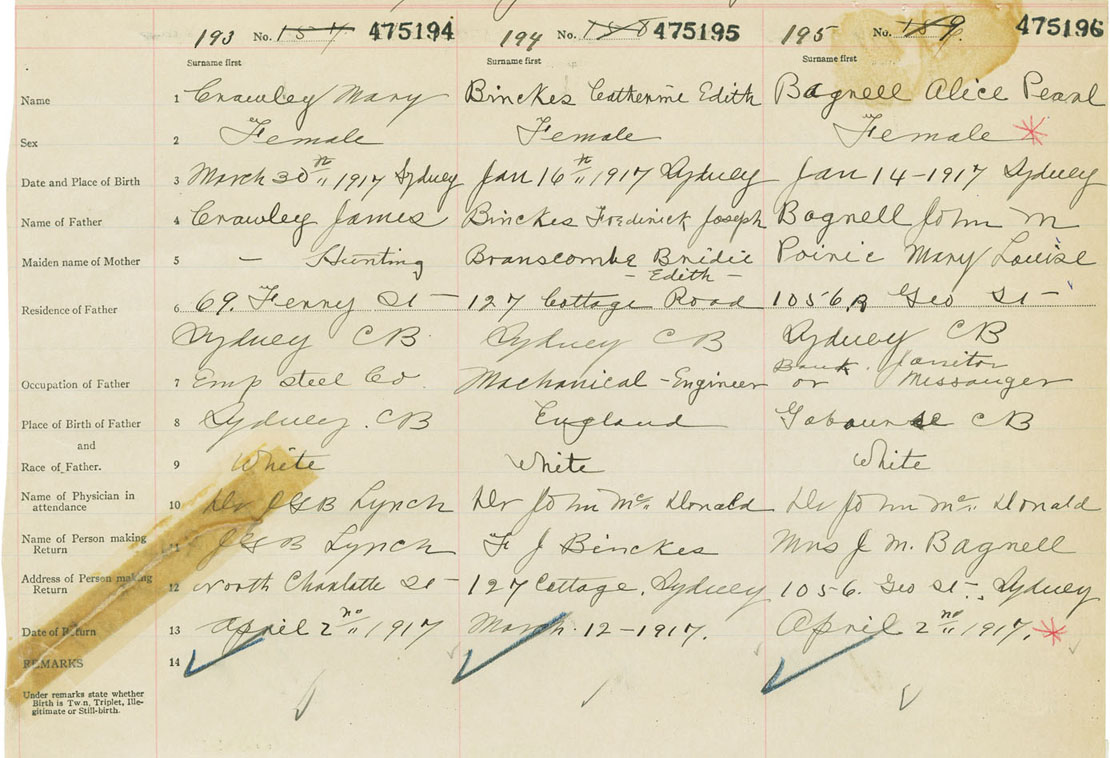 193 No. 157 475194 194 No. 158 475195 195 No. 159. 475196
Surname first Surname first Surname first
Name 1 Crawley Mary Binckes Catherine Edith Bagnell Alice Pearl
Sex 2 Female Female Female *
Date and Place of Birth 3 March 30th 1917 Sydney Jan 16th 1917 Sydney Jan 14-1917 Sydney
Name of Father 4 Crawley James Binckes Frederick Joseph Bagnell John M
Maiden name of Mother 5 — Hunting Branscombe Bridie Poirie Mary Louise
- Edith -
Residence of Father 6 69. Ferry St — 127 Cottage Road 1056 Geo St —
Sydney CB Sydney CB Sydney CB
Bank Janitor
Occupation of Father 7 Emp Steel Co Mechanical - Engineer or Missanger
Place of Birth of Father 8 Sydney. CB England CB
and
Race of Father. 9 White White White
Name of Physician in
attendance 10 Dr JGB Lynch Dr John Mc Donald Dr John Mc Donald
Name of Person making
Return 11 JGB Lynch F J Binckes Mrs J M. Bagnell
Address of Person making
Return 12 North Charlotte St — 127 Cottage, Sydney 1056. Geo St. Sydney
Date of Return 13 April 2nd 1917 March. 12-1917. April 2nd 1917. *
REMARKS 14
Under remarks state whether
Birth is Twin, Triplet, Ille-
gitimate or Still-birth.